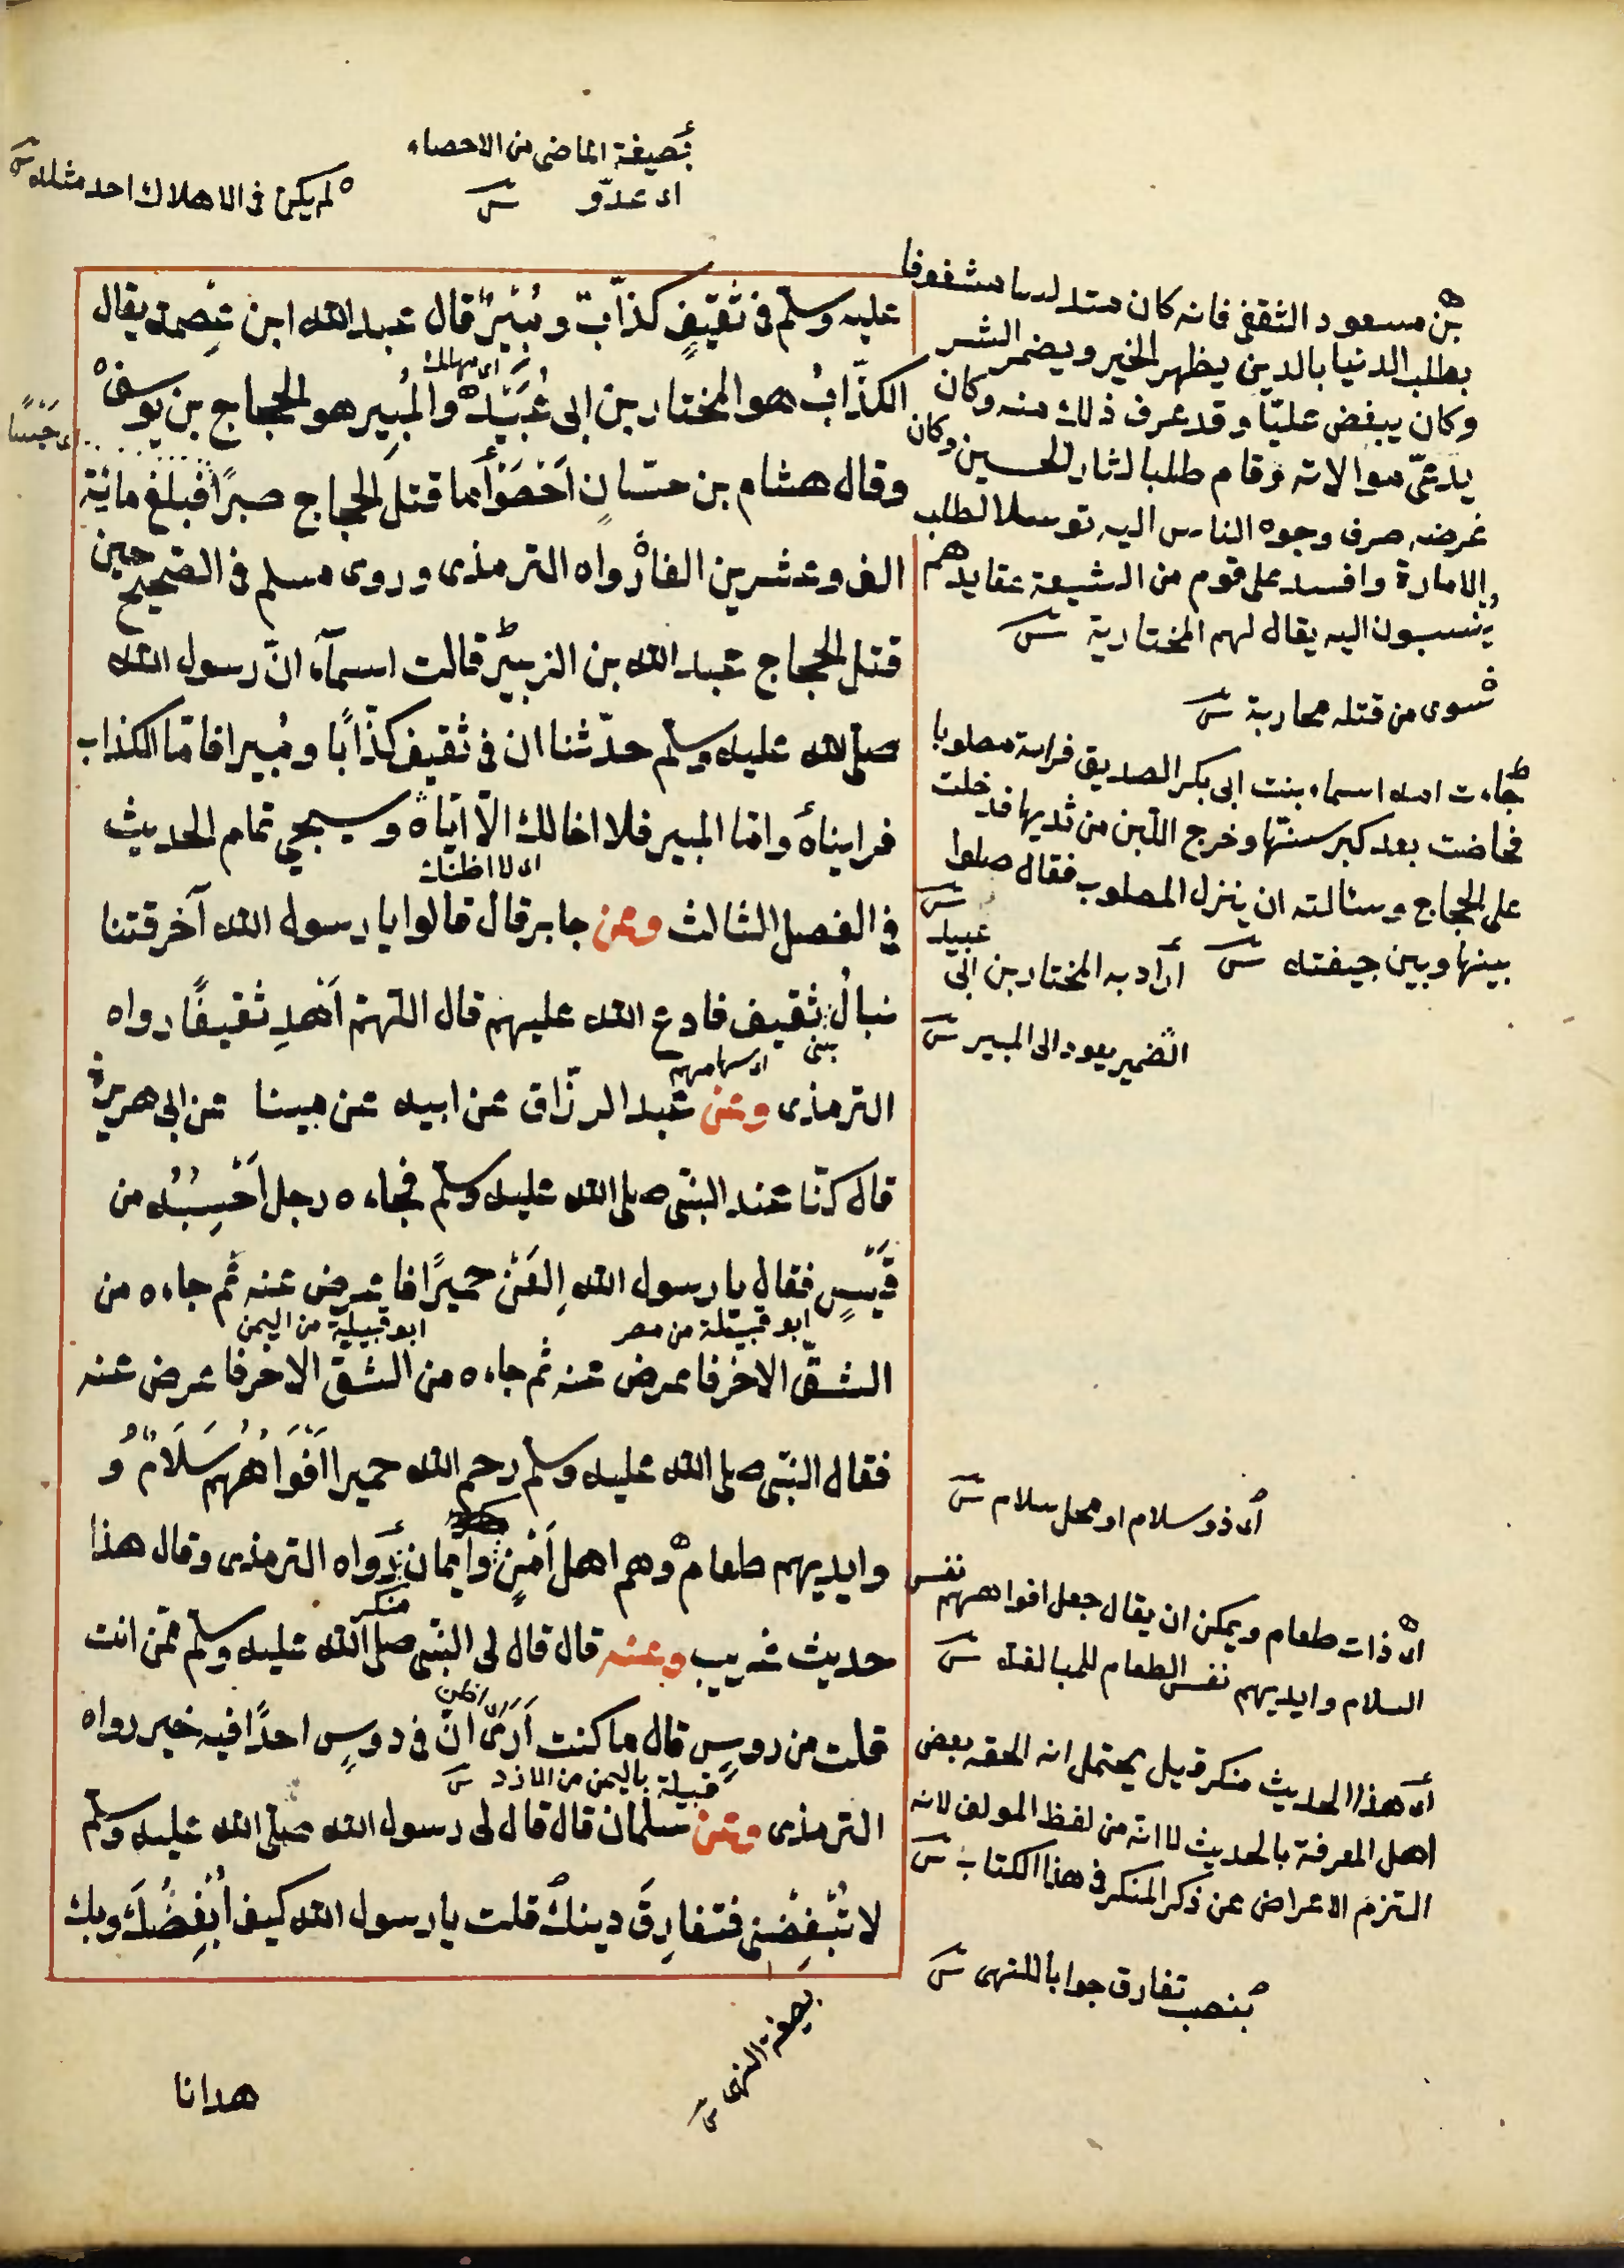 بصيغة الماضى من الاحصاء
اى عدّو
لم يكن فى الاهلاك احد مثله
عليه وسلم فى ثقيف كذّاب ومُبير قال عبد الله ابن عِصمة يقال
اى مهلك
الكذّابُ هو المختار بن ابى عُبَيْدٍ والمُبِير هو الحجاج بن يوسف
اى حَبْسًا
وقال هشام بن حسّانٍ اَحْصَوْا ما قتل الحجاج صبرًا فبلغ مائة
الف وعشرين الفا رواه الترمذى وروى مسلم فى الصحيح حين
قتل الحجاج عبد الله بن الزبير قالت اسمآء انّ رسول الله
صلى الله عليه وسلم حدّثنا ان فى ثقيف كذّابًا ومُبيرا فامّا الكذاب
فرايناه وامّا المبير فلا اخالك الّا ايّاه وسيجئ تمام الحديث
اى لا اظنك
فى الفصل الثالث وعن جابر قال قالوا يا رسول الله آخرقتنا
نبالُ ثقيف فادع الله عليهم قال اللّهمّ اَهْدِ ثقيفًا رواه
بنى
اى سهامهم
الترمذى وعن عبد الرزّاق عن ابيه عن مينا عن ابى هريرة
قال كنّا عند النبّى صلى الله عليه وسلم فجاءه رجل اَحْسِبُهُ من
قَيْسٍ فقال يا رسول الله اِلْعَنْ حميرًا فاعرض عنه ثم جاءه من
ابو قبيلة من مصر
ابو قبيلة من اليمن
الشقّ الاخر فاعرض عنه ثم جاءه من الشقّ الاخر فاعرض عنه
فقال النبّى صلى الله عليه وسلم رحم الله حميرا اَفْوَاهُهُم سَلَامٌ و
وايديهم طعام وهم اهل اَمْنٍ وايمان رواه الترمذى وقال هذا
حديث غريب وعنه قال قال لى النبّى صلى الله عليه وسلم ممّن انت
منكر
قلت من دوسٍ قال ما كنت اَرَى انّ فى دوسٍ احدًا فيه خير رواه
اى اظن
قبيلة باليمن من الازد
الترمذى وعن سلمان قال قال لى رسول الله صلى الله عليه وسلم
لا تُبْغِضْنى فتفارِقَ دينك قلت يا رسول الله كيف اُبْغِضُكَ وبك
بصيغة النهى
هدانا
بن مسعود الثقفى فانه كان
بطلب الدنيا بالدين يظهر الخير ويضمر الشر
وكان يبغض عليّا وقد عرف ذلك منه وكان
يدعى موالاته وقام طلبا لثار الحسين وكان
غرضه صرف وجوه الناس اليه توسلا لطلب
الامارة وافسد على قوم من الشيعة عقايدهم
ينسبون اليه يقال لهم المختارية
سوى من قتله محاربة
جاءت امه اسماء بنت ابى بكر الصديق فراته مصلوبا
فحاضت بعد كبر سنّها وخرج اللبن من ثديها فدخلت
على الحجاج وسئالته ان ينزل المصلوب فقال صلوا
بينها وبين جيفته
اراد به المختار بن ابى
عبيد
الضمير يعود الى المبير
اى ذو سلام او محل سلام
اى ذات طعام ويمكن ان يقال جعل افواههم نفس
السلام وايديهم نفس الطعام للمبالغة
اى هذا الحديث منكر قيل يحتمل انه الحقه بعض
اهل المعرفة بالحديث لا انه من لفظ المولف لانه
التزم الاعراض عن ذكر المنكر فى هذا الكتاب
بنصب تفارق جوابا للنهى